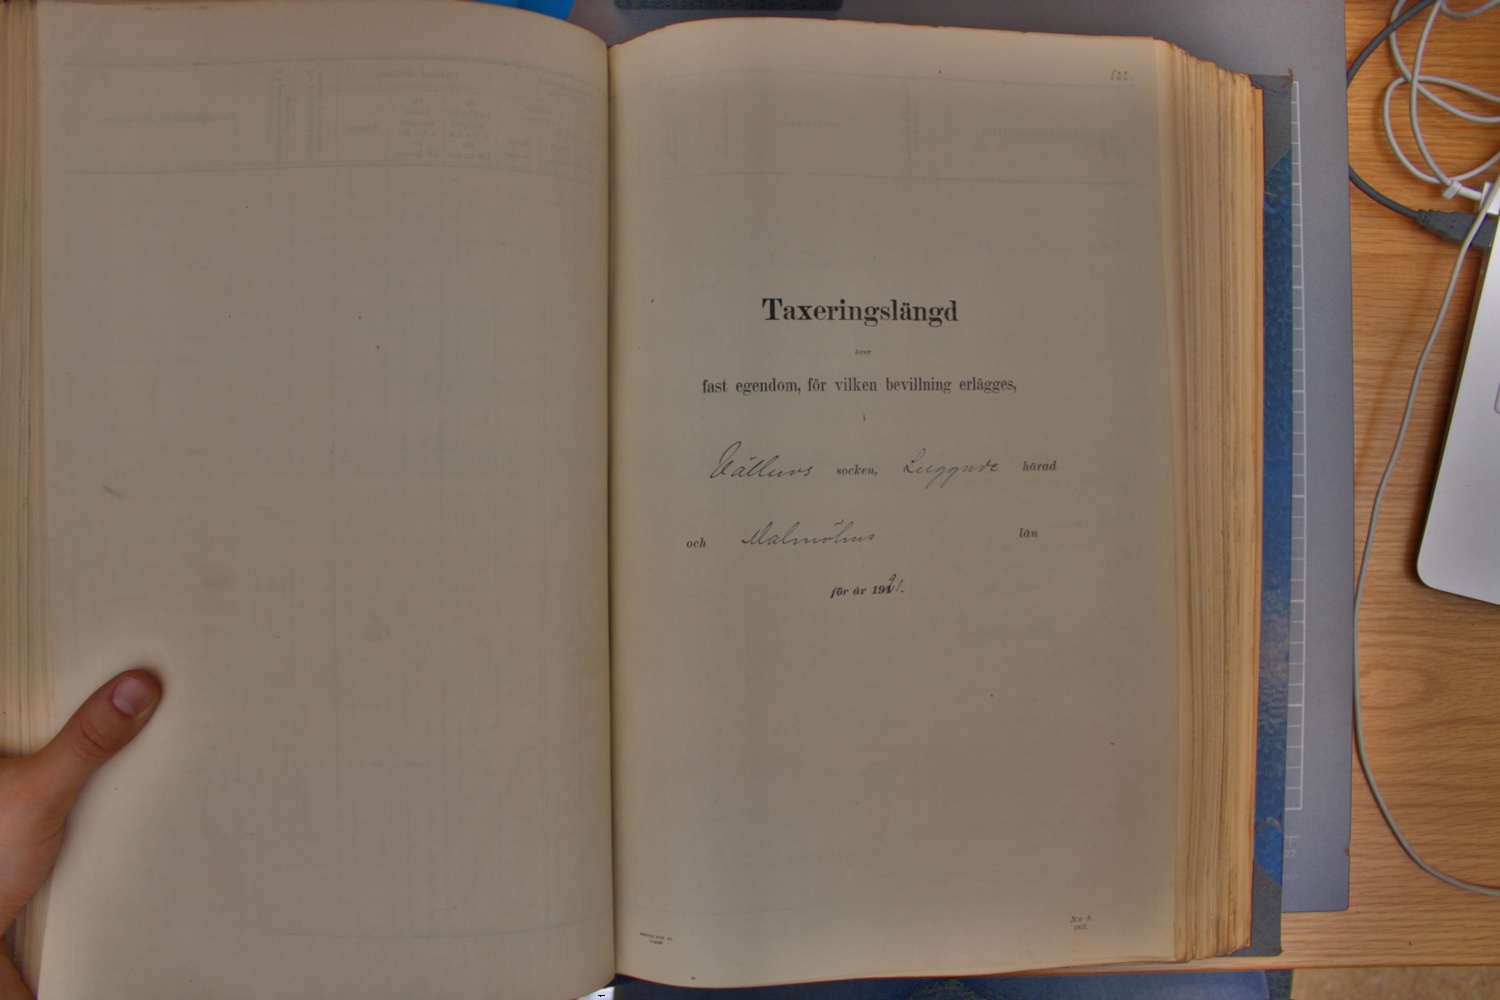 533.
Taxeringslängd
över
fast egendom, för vilken bevillning erlägges,
i
Välluvs socken, Luggude härad
och Malmöhus län
för år 1921.
N:r 9.